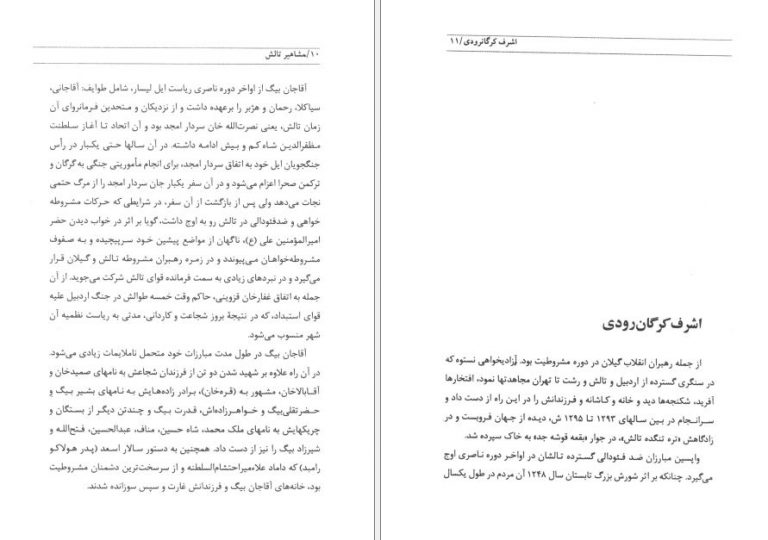 ۱۰/مشاهیر تالش
آقاجان بیگ از اواخر دوره ناصری ریاست ایل لیسار، شامل طوایف: آقاجانی،
سیاکلا، رحمان و هژبر را برعهده داشت و از نزدیکان و متحدین فرمانروای آن
زمان تالش، یعنی نصرت‌الله خان سردار امجد بود و آن اتحاد تا آغاز سلطنت
مظفرالدین شاه کم و بیش ادامه داشته. در آن سالها حتی یکبار در رأس
جنگجویان ایل خود به اتفاق سردار امجد، برای انجام مأموریتی جنگی به گرگان و
ترکمن صحرا اعزام می‌شود و در آن سفر یکبار جان سردار امجد را از مرگ حتمی
نجات می‌دهد ولی پس از بازگشت از آن سفر، در شرایطی که حرکات مشروطه
خواهی و ضدفئودالی در تالش رو به اوج داشت، گویا بر اثر در خواب دیدن حضر
امیرالمؤمنین علی (ع)، ناگهان از مواضع پیشین خود سرپیچیده و به صفوف
مشروطه‌خواهان می‌پیوندد و در زمره رهبران مشروطه تالش و گیلان قرار
می‌گیرد و در نبردهای زیادی به سمت فرمانده قوای تالش شرکت می‌جوید. از آن
جمله به اتفاق غفارخان قزوینی، حاکم وقت خمسه طوالش در جنگ اردبیل علیه
قوای استبداد، که در نتیجهٔ بروز شجاعت و کاردانی، مدتی به ریاست نظمیه آن
شهر منسوب می‌شود.
آقاجان بیگ در طول مدت مبارزات خود متحمل ناملایمات زیادی می‌شود.
در آن راه علاوه بر شهید شدن دو تن از فرزندان شجاعش به نامهای صمیدخان و
آقابالاخان، مشهور به (قره‌خان)، برادر زاده‌هایش به نامهای بشیر بیگ و
حضرتقلی‌بیگ و خواهرزاده‌اش، قدرت بیگ و چندتن دیگر از بستگان و
چریکهایش به نامهای ملک محمد، شاه حسین، مناف، عبدالحسین، فتح‌الله و
شیرزاد بیگ را نیز از دست داد. همچنین به دستور سالار اسعد (پدر هولاکو
رامبد) که داماد غلامیراحتشام‌السلطنه و از سرسخت‌ترین دشمنان مشروطیت
بود، خانه‌های آقاجان بیگ و فرزندانش غارت و سپس سوزانده شدند.
اشرف کرگانرودی/۱۱
اشرف کرگان‌رودی
از جمله رهبران انقلاب گیلان در دوره مشروطیت بود. آزادیخواهی نستوه که
در سنگری گسترده از اردبیل و تالش و رشت تا تهران مجاهدتها نمود، افتخارها
آفرید، شکنجه‌ها دید و خانه و کاشانه و فرزندانش را در این راه از دست داد و
سرانجام در بین سالهای ۱۲۹۳ تا ۱۲۹۵ ش، دیده از جهان فروبست و در
زادگاهش «تره تنگده تالش»، در جوار «بقعه قوشه جد» به خاک سپرده شد.
واپسین مبارزان ضد فئودالی گسترده تالشان در اواخر دوره ناصری اوج
می‌گیرد. چنانکه بر اثر شورش بزرگ تابستان سال ۱۲۴۸ آن مردم در طول یکسال